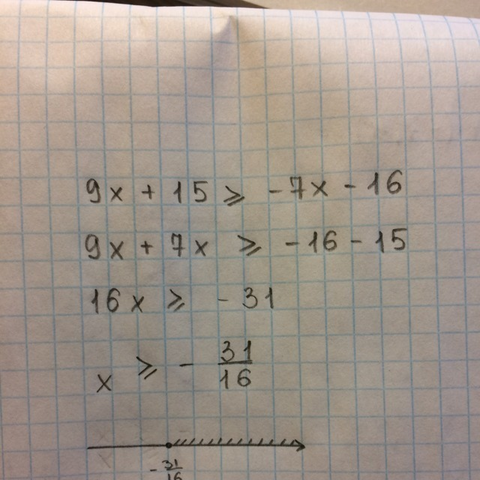 9x + 15 ⩾ -7x - 16
9x + 7x ⩾ -16 - 15
16x ⩾ -31
x ⩾ - 31/16
- 31/16